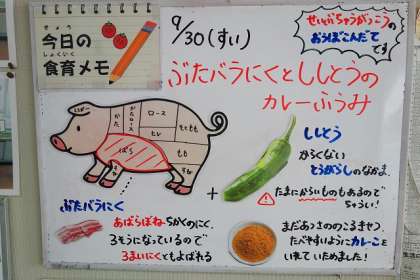 きょう
今日の
しょくいく
食育メモ
9/30(すい)
せいとちゃうがっこうの
おうぼこんだて
です
ぶたバラにくとししとうの
カレーふうみ
かた
かたロース
ロース
ヒレ
そともも
もも
ばら
ぶたバラにく
あばらぼねちかくのにく。
3そうになっているので
3まいにくともよばれる
+
ししとう
からくない
とうがらしのなかま。
たまにからいものもあるので
ちゅうい!
まだあつさののこるきせつ、
たべやすいようにカレーこを
いれていためました!